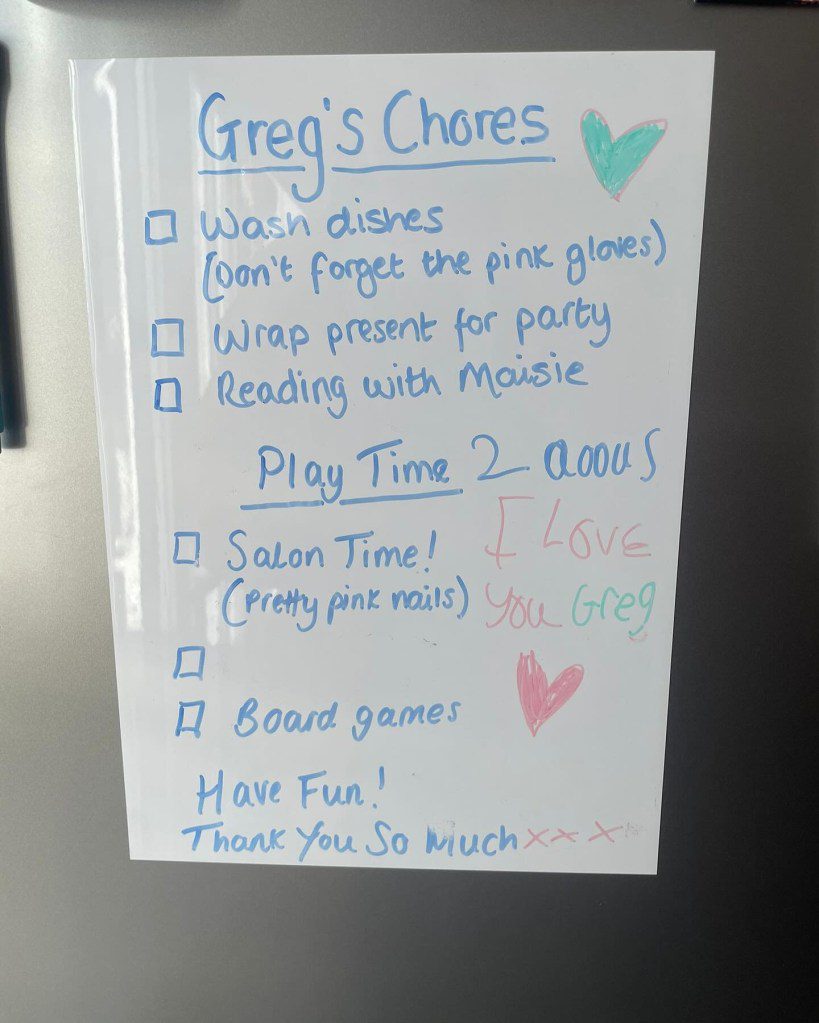 Greg's Chores
Wash dishes
(Don't forget the pink gloves)
Wrap present for party
Reading with Maisie
Play Time 2
Salon Time! I LOVE
(Pretty pink nails) you Greg
Board games
Have Fun!
Thank You So Much xxx